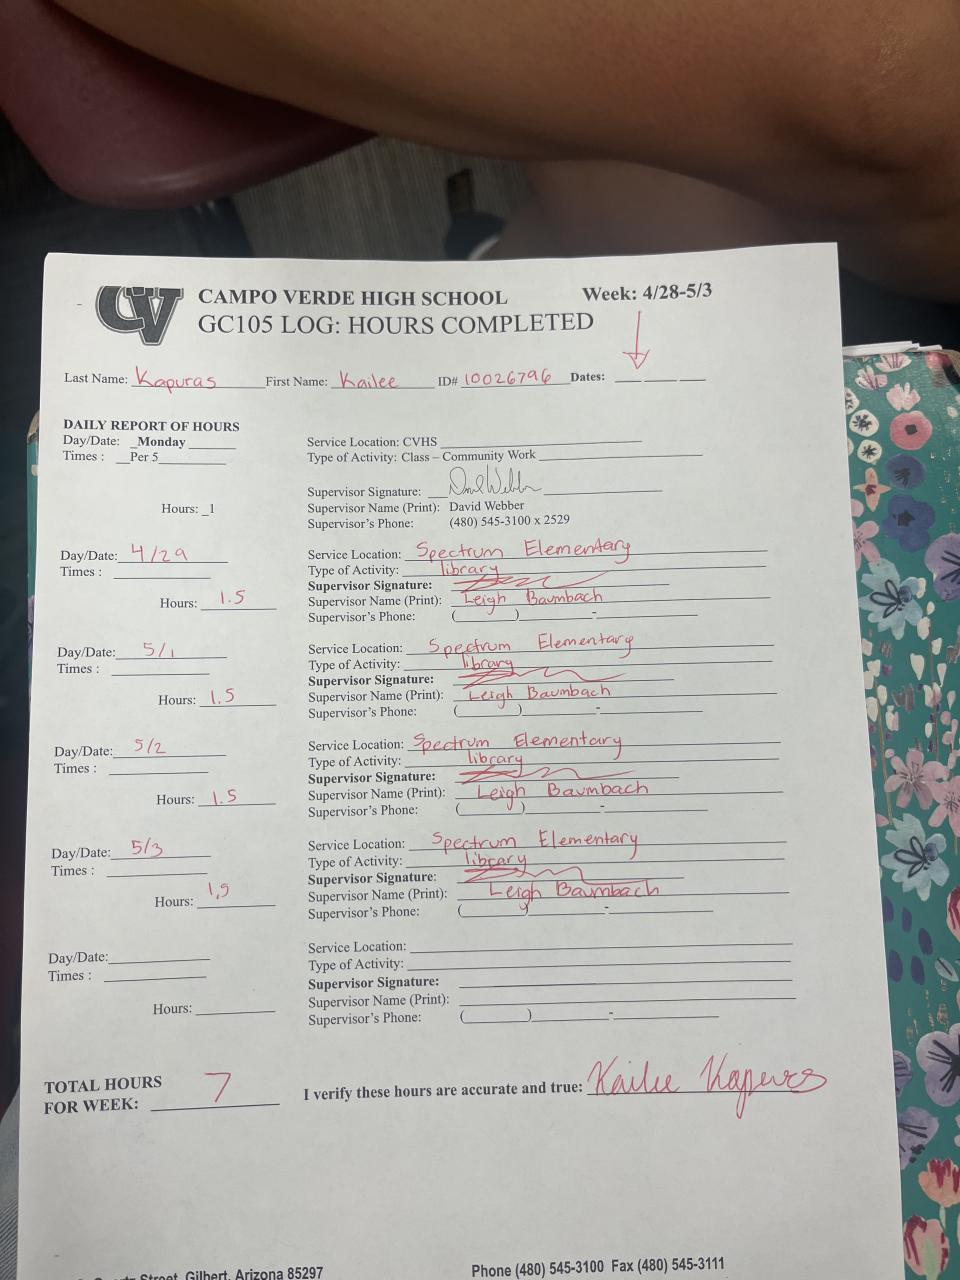 CV
CAMPO VERDE HIGH SCHOOL Week: 4/28-5/3
GC105 LOG: HOURS COMPLETED
Last Name: Kapuras First Name: Kailee ID# 10026796 Dates: ___ ___ ___
DAILY REPORT OF HOURS
Day/Date: _Monday Service Location: CVHS
Times : __Per 5 Type of Activity: Class – Community Work
Supervisor Signature: David Webber
Hours: _1 Supervisor Name (Print): David Webber
Supervisor's Phone: (480) 545-3100 x 2529
Day/Date: 4/29 Service Location: Spectrum Elementary
Times : Type of Activity: library
Supervisor Signature:
Hours: 1.5 Supervisor Name (Print): Leigh Baumbach
Supervisor's Phone: ( ) -
Day/Date: 5/1 Service Location: Spectrum Elementary
Times : Type of Activity: library
Supervisor Signature:
Hours: 1.5 Supervisor Name (Print): Leigh Baumbach
Supervisor's Phone: ( ) -
Day/Date: 5/2 Service Location: Spectrum Elementary
Times : Type of Activity: library
Supervisor Signature:
Hours: 1.5 Supervisor Name (Print): Leigh Baumbach
Supervisor's Phone: ( ) -
Day/Date: 5/3 Service Location: Spectrum Elementary
Times : Type of Activity: library
Supervisor Signature:
Hours: 1,5 Supervisor Name (Print): Leigh Baumbach
Supervisor's Phone: ( ) -
Day/Date: Service Location:
Times : Type of Activity:
Supervisor Signature:
Hours: Supervisor Name (Print):
Supervisor's Phone: ( ) -
TOTAL HOURS
FOR WEEK: 7 I verify these hours are accurate and true: Kailee Kapuras
Street, Gilbert, Arizona 85297 Phone (480) 545-3100 Fax (480) 545-3111